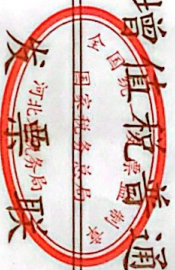 增值税普通
发票联
全国统 票 制章
国家税务总局
河北 务局